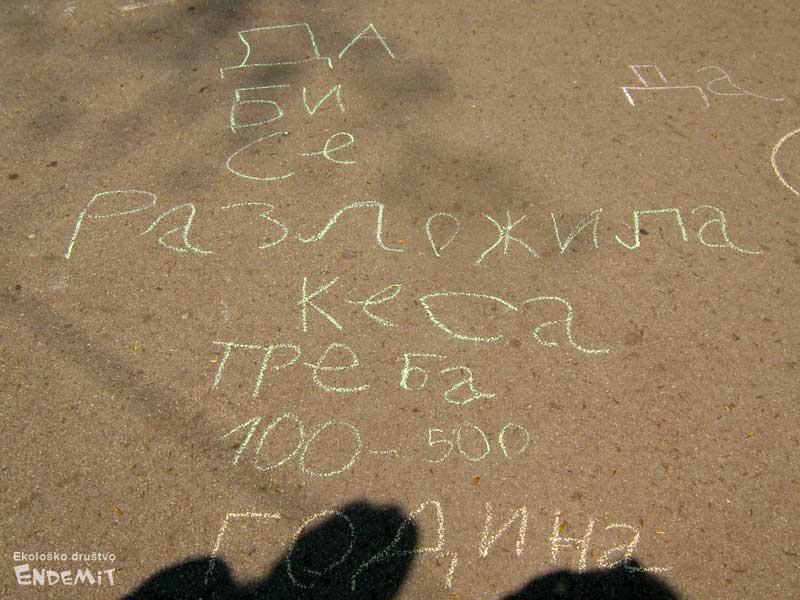 ДА
БИ
Се
Разложила
Кеса
треба
100-500
година
Да
Ekološko društvo
ENDEMiT